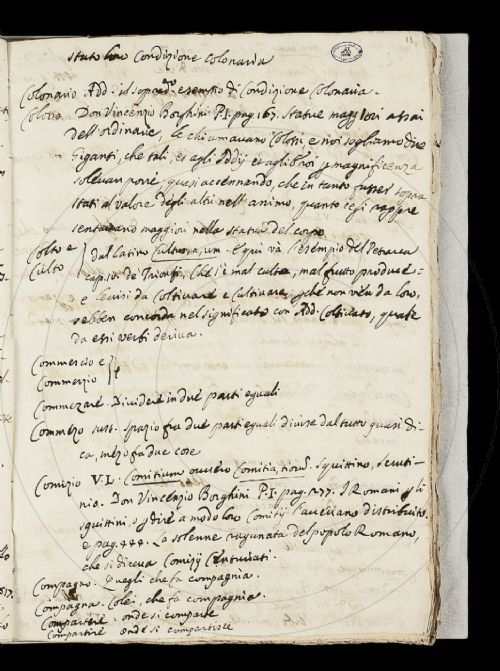 13
stato loro Condizione colonaria
Colonario Add. il soprad.º esempio di Condizione Colonaria.
Colosso Don Vincenzio Borghini P.I. pag. 167. Statue maggiori assai
dell'ordinarie, le chiamavano Colossi, e noi sogliamo dire
Giganti, che tali, et agli Iddij et agli Eroi p magnificenza
solevan porre; quasi accennando, che in tanto fusser sopra
stati al valore degli altri nell'animo, quanto essi rappre
sentavano maggiori nella statura del corpo
Colto e
Culto
dal latino Cultus, a, um. E qui và l'esempio del Petrarca
cap. 5. de Trionfi, Che s'è mal culta, mal frutto produce:
e levisi da Coltivare e Cultivare, p che non vien da loro,
sebben concorda nel significato con Add. Coltivato, quale
da essi verbi deriva.
Commercio e
Commerzio
Commezare. Dividere in due parti eguali
Commezo sust. spazio fra due parti eguali divise dal tutto quasi di-
ca, mezo fra due cose
Comizio V.L. Comitium ovvero Comitia, tiorũ. Squittino, Scruti-
nio. Don Vincenzio Borghini P.I. pag. 277. I Romani p gli
squittini, o p dire a modo loro Comizij l'avevano distribuito.
e pag. 444. La solenne ragunata del popolo Romano,
che si diceva Comizij Centuriati.
Compagno. Quegli che fa compagnia.
Compagna. Colei, che fa compagnia.
Compartire. onde si comparte
Compartire onde si compartisce